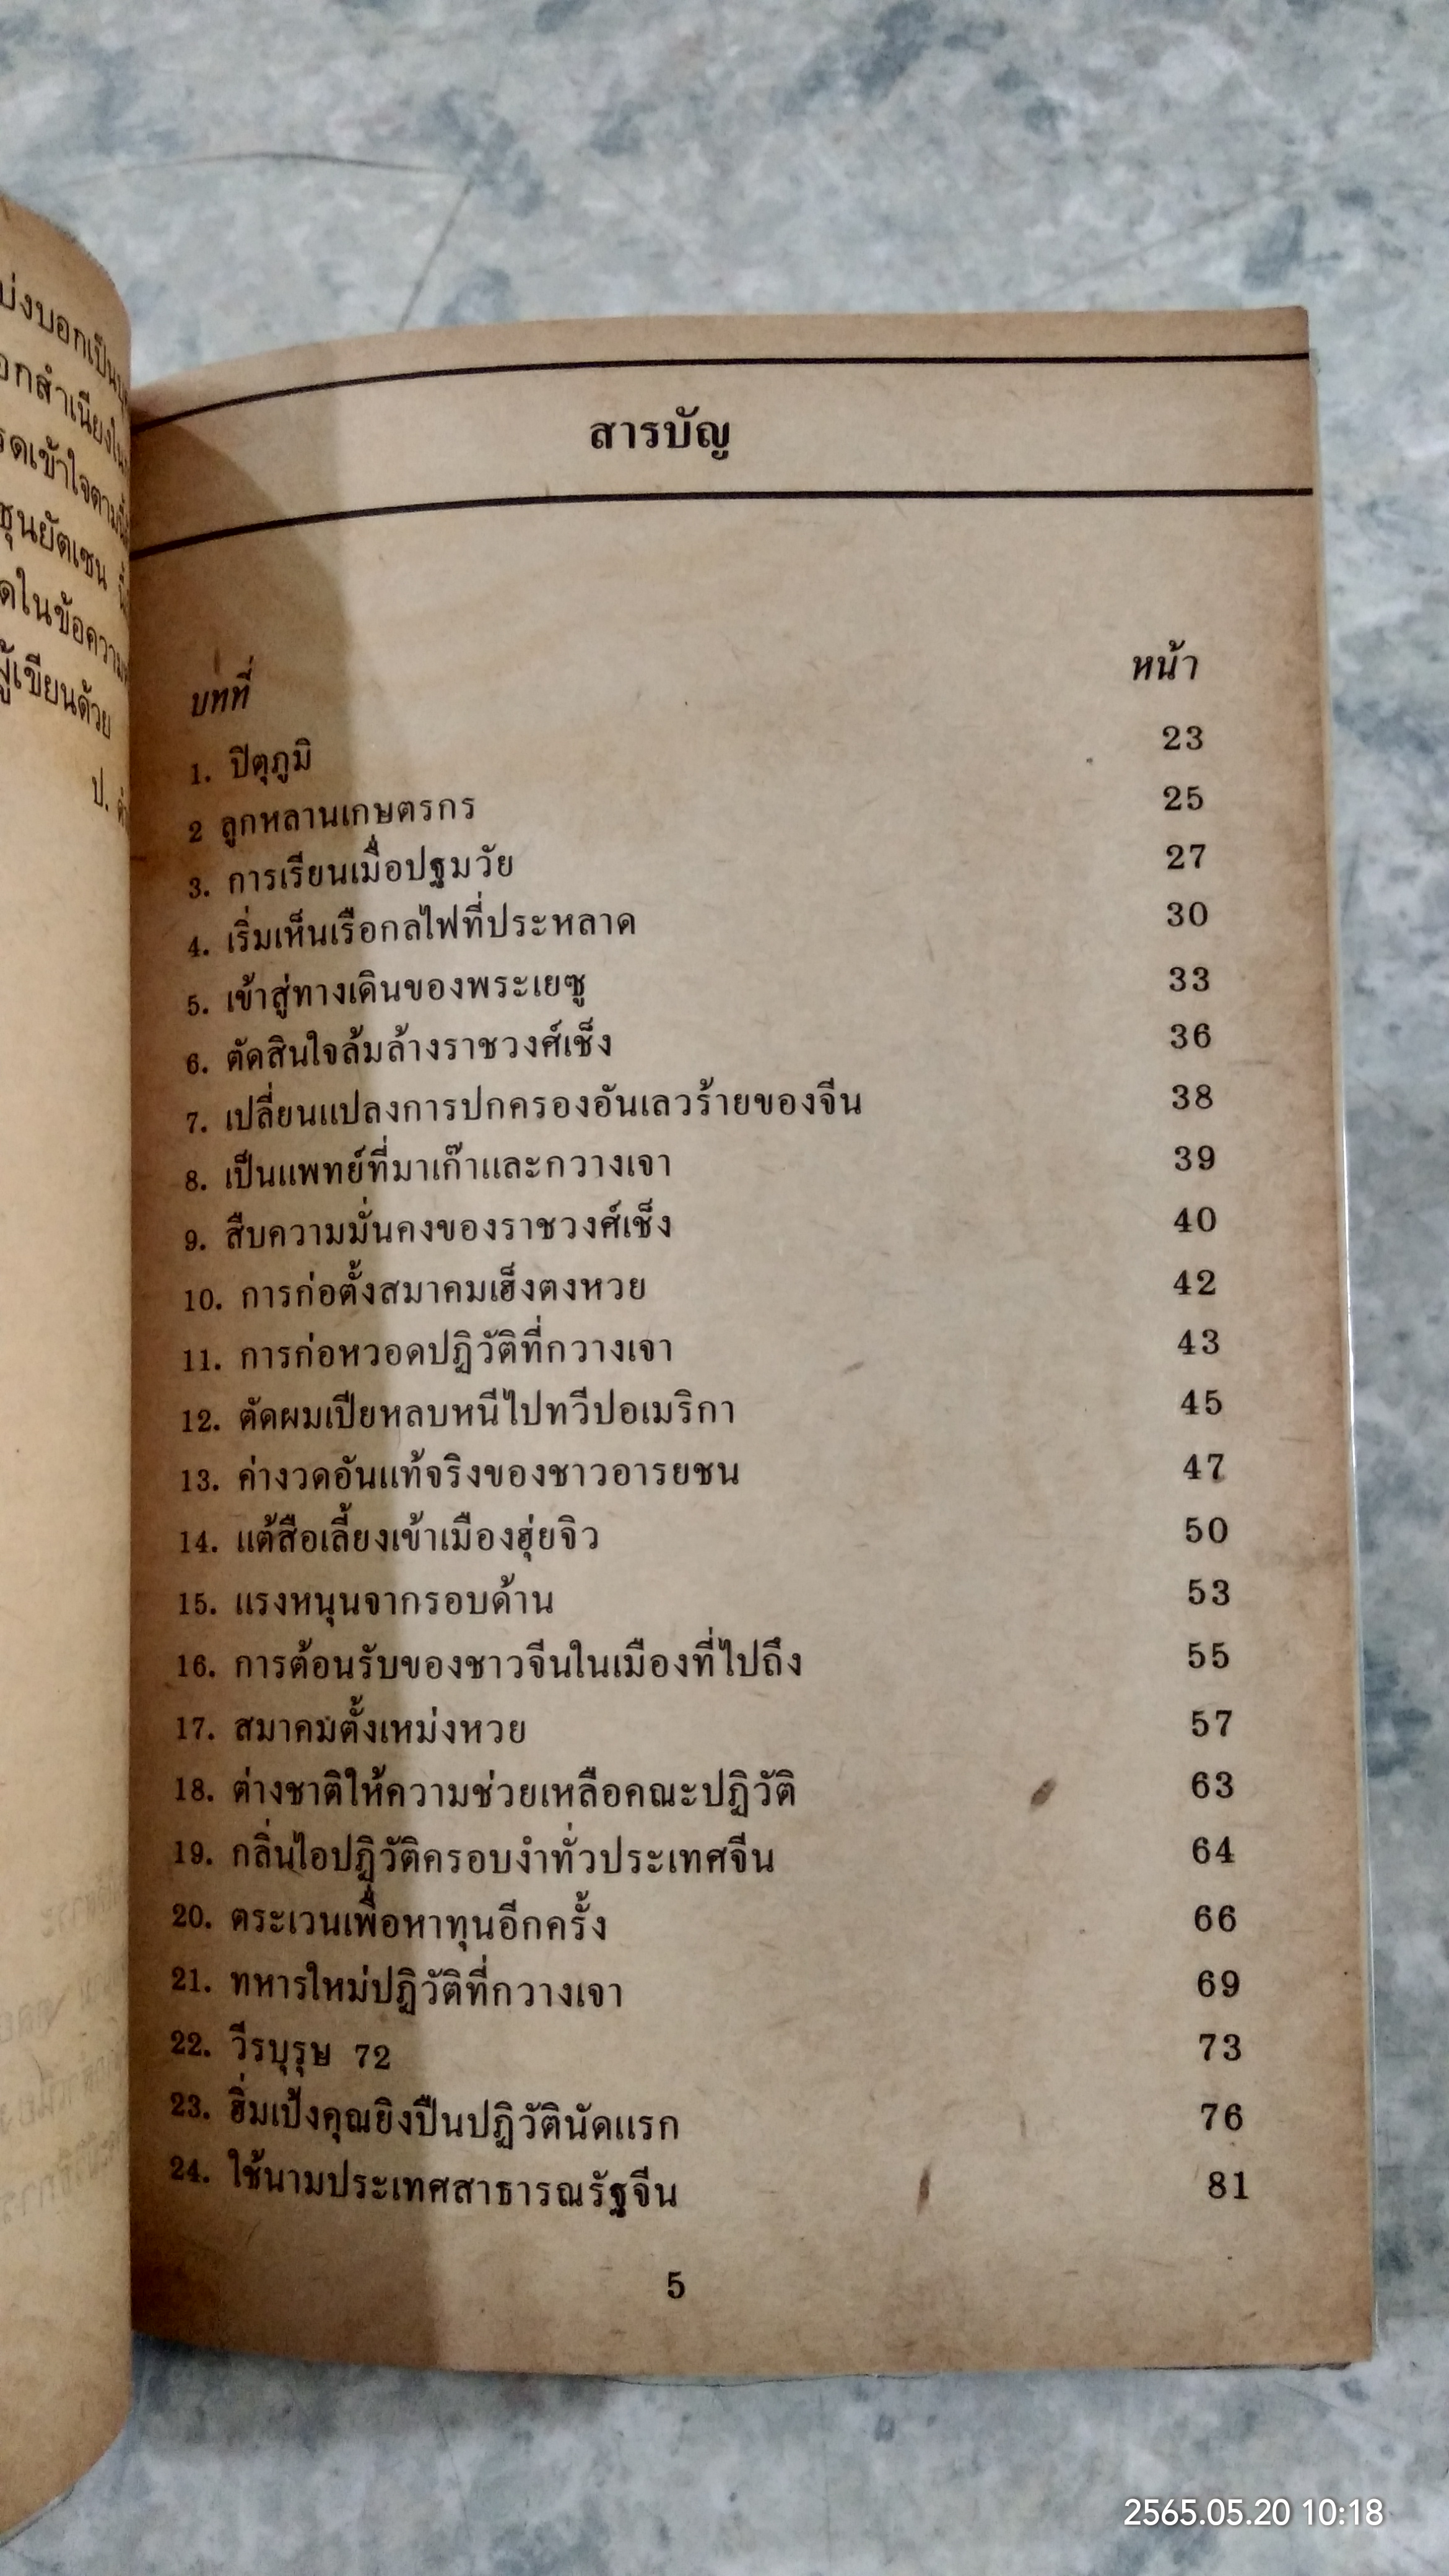 บ่งบอกเป็น
อกสำเนียงใน
รดเข้าใจตาม
ซุนยัดเซน
ดในข้อความ
ผู้เขียนด้วย
ป.
สารบัญ
บทที่ หน้า
1. ปิตุภูมิ 23
2 ลูกหลานเกษตรกร 25
3. การเรียนเมื่อปฐมวัย 27
4. เริ่มเห็นเรือกลไฟที่ประหลาด 30
5. เข้าสู่ทางเดินของพระเยซู 33
6. ตัดสินใจล้มล้างราชวงศ์เช็ง 36
7. เปลี่ยนแปลงการปกครองอันเลวร้ายของจีน 38
8. เป็นแพทย์ที่มาเก๊าและกวางเจา 39
9. สืบความมั่นคงของราชวงศ์เช็ง 40
10. การก่อตั้งสมาคมเฮ็งตงหวย 42
11. การก่อหวอดปฏิวัติที่กวางเจา 43
12. ตัดผมเปียหลบหนีไปทวีปอเมริกา 45
13. ค่างวดอันแท้จริงของชาวอารยชน 47
14. แต้สือเลี้ยงเข้าเมืองฮุ่ยจิว 50
15. แรงหนุนจากรอบด้าน 53
16. การต้อนรับของชาวจีนในเมืองที่ไปถึง 55
17. สมาคมตั้งเหม่งหวย 57
18. ต่างชาติให้ความช่วยเหลือคณะปฏิวัติ 63
19. กลิ่นไอปฏิวัติครอบงำทั่วประเทศจีน 64
20. ตระเวนเพื่อหาทุนอีกครั้ง 66
21. ทหารใหม่ปฏิวัติที่กวางเจา 69
22. วีรบุรุษ 72 73
23. ฮิ่มเป้งคุณยิงปืนปฏิวัตินัดแรก 76
24. ใช้นามประเทศสาธารณรัฐจีน 81
5
2565.05.20 10:18